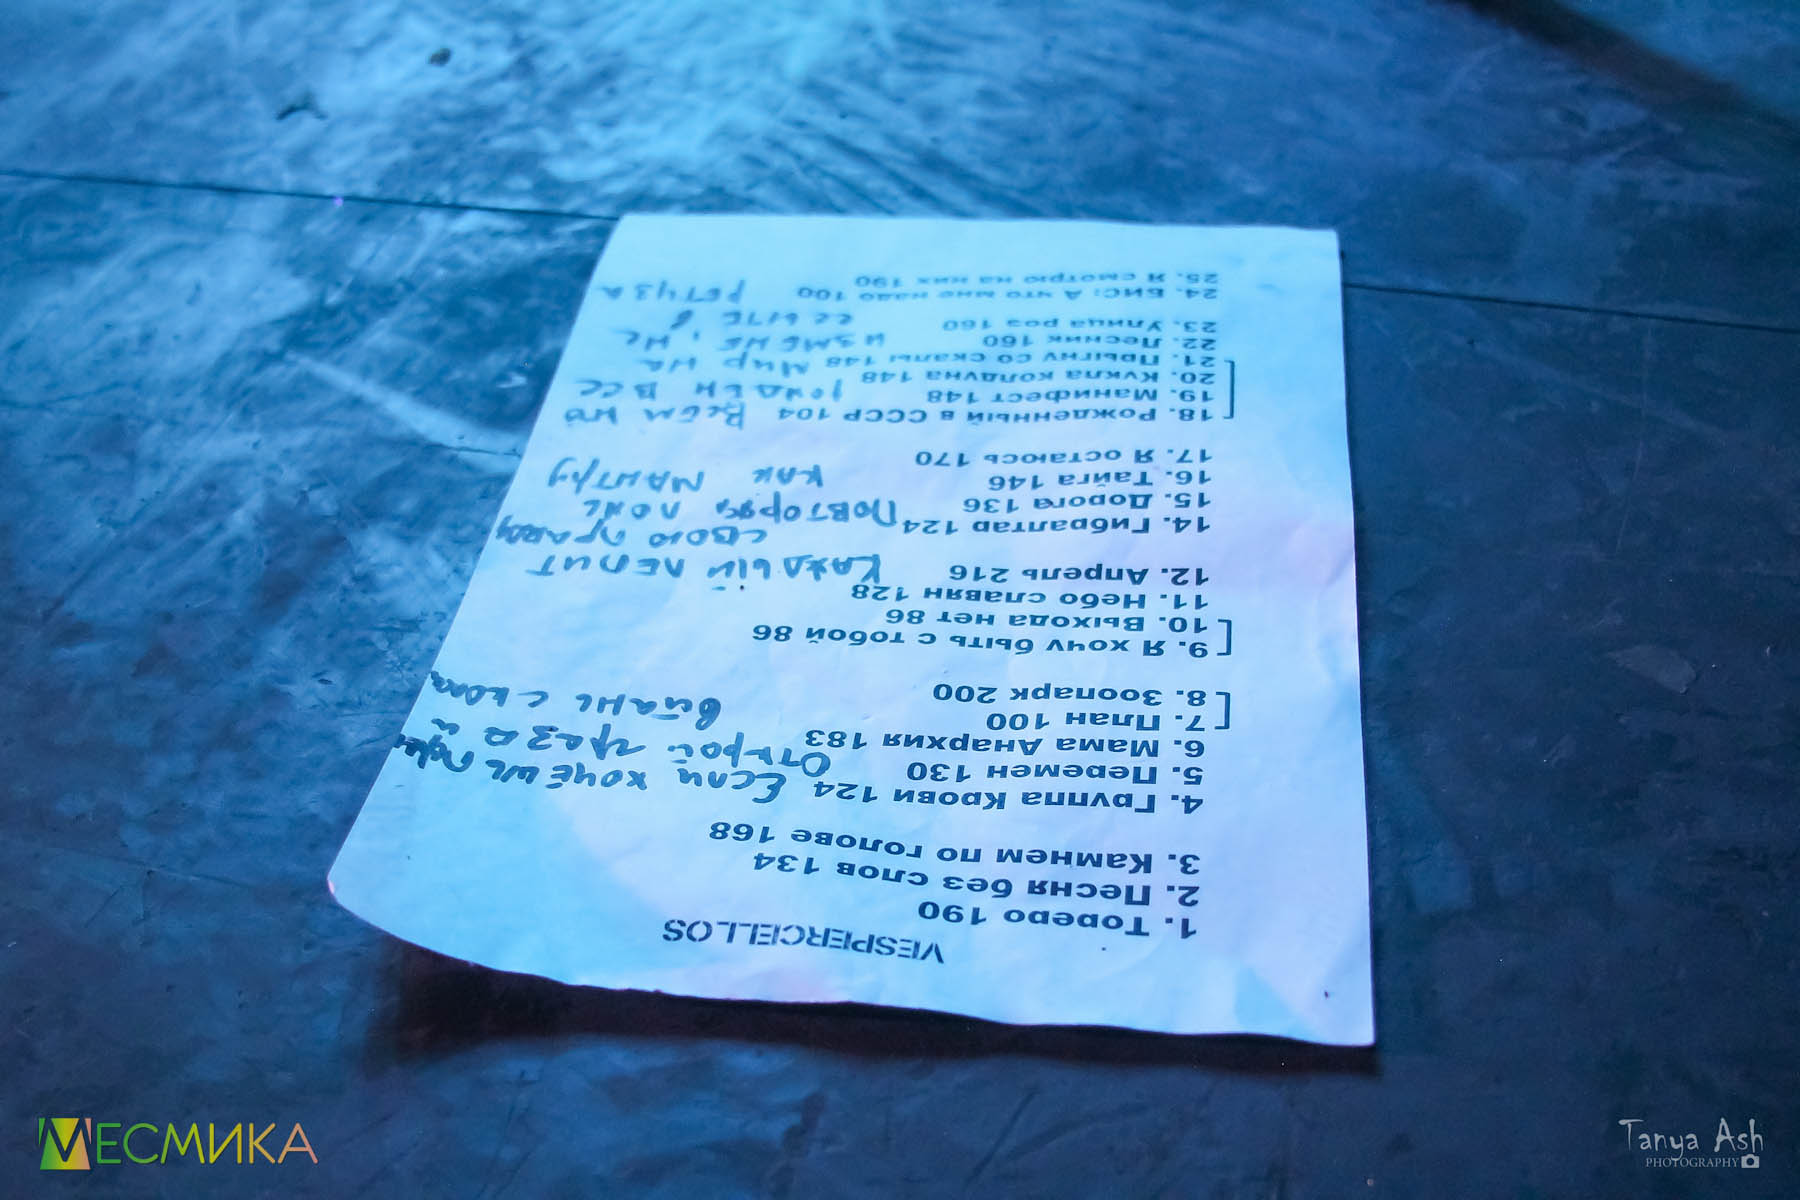 VESPERCELLOS
1. Тореро 190
2. Песня без слов 134
3. Камнем по голове 168
4. Группа Крови 124 Если хочешь
5. Перемен 130 Открой глаза и
6. Мама Анархия 183
7. План 100 встань с
8. Зоопарк 200
9. Я хочу быть с тобой 86
10. Выхода нет 86
11. Небо славян 128
12. Апрель 216 Каждый лепит
свою правду
14. Гибралтар 124 Повторяя ложь
15. Дорога 136
16. Тайга 146 как мантру
17. Я остаюсь 170
18. Рожденный в СССР 104 Всем но
19. Манифест 148 рожден все
20. Кукла колдуна 148
21. Прыгну со скалы 148 мир на
22. Лесник 160 измене, не
23. Улица роз 160 ссыте в
24. БИС: А что мне надо 100 ретуза
25. Я смотрю на них 190
МЕСМИКА
Tanya Ash
PHOTOGRAPHY